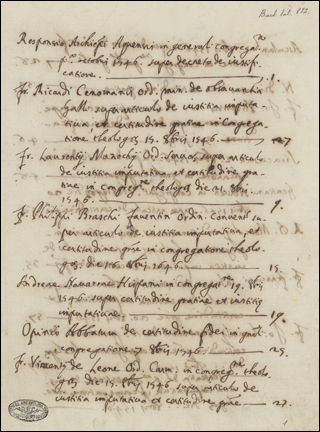 Barb. lat. 882.
Responsio Archiepi Aquensis in generali congregat.ne
p.a octobris 1546. super decreto de iustifi-
catione. 1.
Fr. Ricardi Cenomani Ord. min. de observantia
Galli super articulo de iustitia imputa-
tiva, et certitudine gratiae in Congrega-
tione theologor. 15. 8bris 1546. 7
Fr. Laurentij Mazochij Ord. Servor. super articulo
de iustitia imputativa, et certitudine gra-
tiae, in congreg.ne theologor. die 21. 8bris
1546. 9.
Fr. Philippi Braschi Faventin Ordin. Convent. su-
per articulo de iustitia imputativa, et
certitudine gratiae in congregatione theolo-
gor. die 16. 8bris 1546. 15.
Andreae Navarrae Hispani in congregat.ne 19. 8bris
1546. super certitudine gratiae et iustitia
imputativa. 19.
Opinio Abbatum de certitudine fidei in gnali
congregatione 1546. 25.
Fr. Vincentij de Leone Ord. Carm. in congreg.ne theolo-
gor. die 15. 8bris 1546. super articulo de
iustitia imputativa et certitudine gratiae 27.